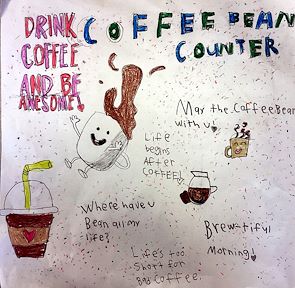 DRINK
COFFEE
AND BE
AWESOME!
COFFEE BEAN
COUNTER
May the Coffee Bean
with u!
Life
begins
After
COFFEE!
Where have u
Bean all my
life?
Brewtiful
Morning!
Life's too
Short for
Bad Coffee.